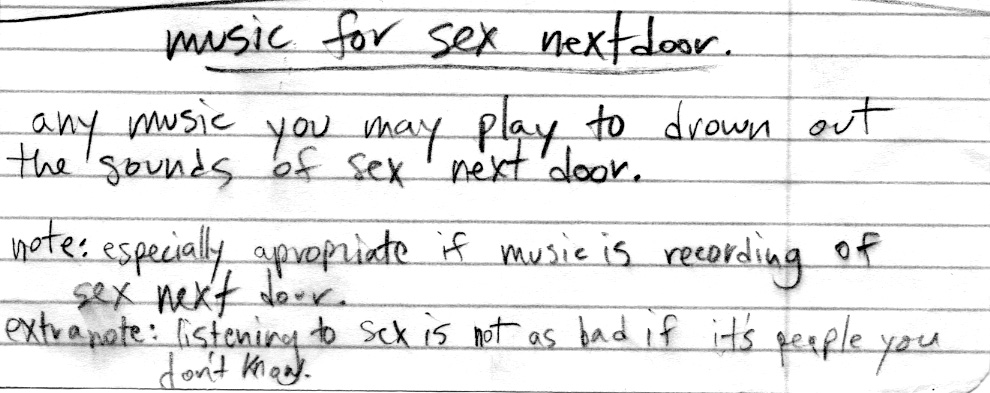 music for sex nextdoor.
any music you may play to drown out
the sounds of sex next door.
note: especially apropriate if music is recording of
sex next door.
extranote: listening to sex is not as bad if it's people you
don't know.